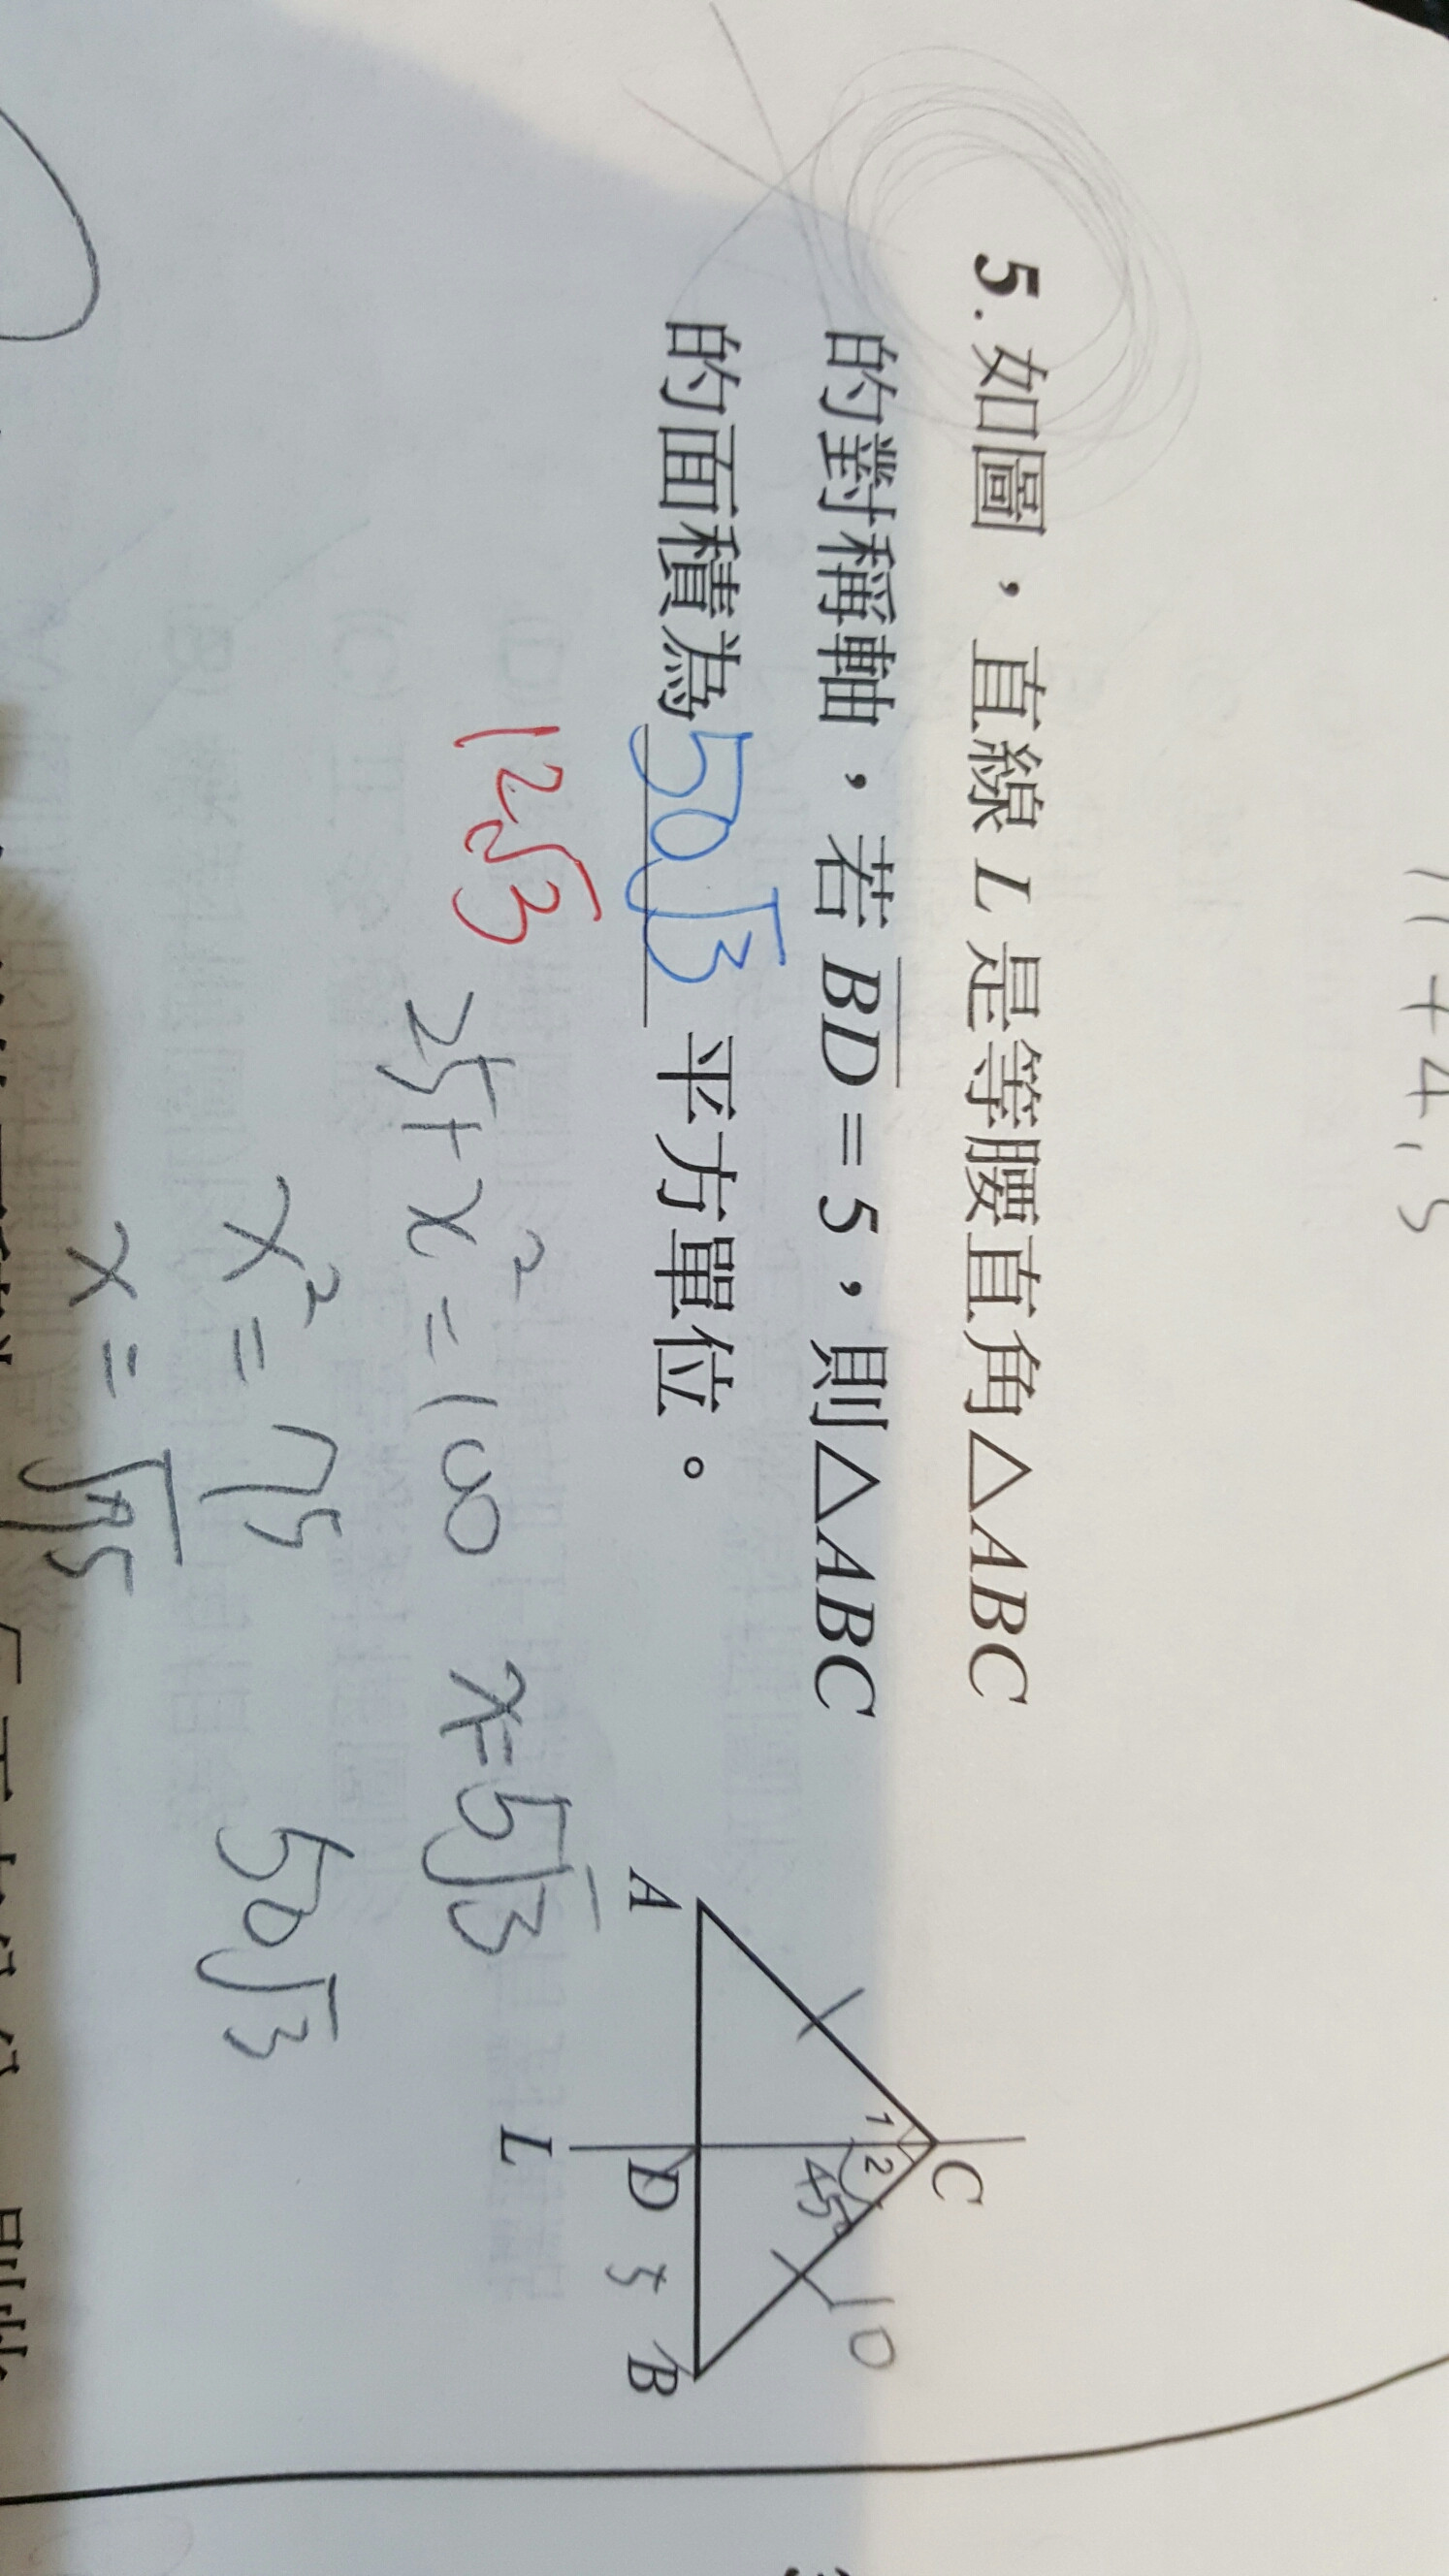 11+4,5
5. 如圖，直線 L 是等腰直角△ABC
的對稱軸，若 BD = 5，則△ABC
的面積為 50√3 平方單位。
12√3
25+x²=100
x=5√3
x²=75
50√3
x=√75
A
1
2
C
45°
10
L
D
5
B